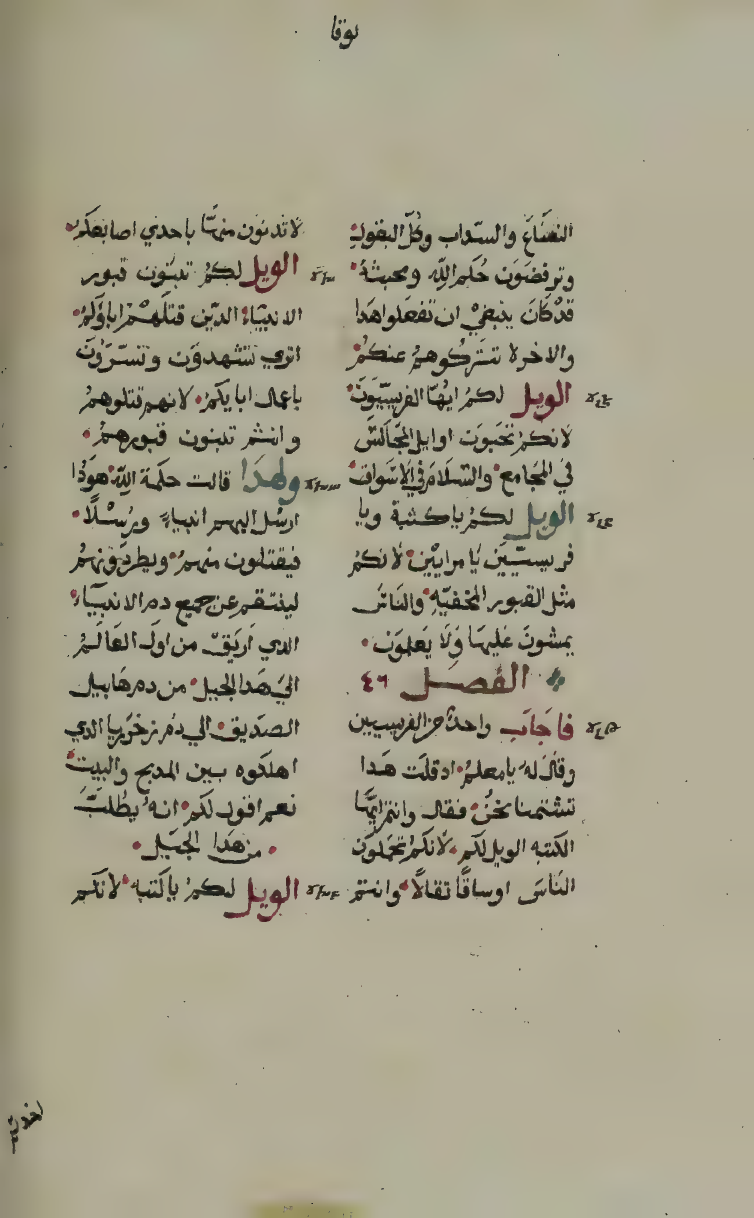 لوقا
النعناع والسداب وكل البقول
وترفضون حكم الله ومحبته
قد كان ينبغي ان تفعلوا هذا
والاخر لا تتركوهم عنكم
الويل لكم ايها الفريسيون
لانكم تحبون اوايل المجالس
في المجامع والسلام في الاسواق
الويل لكم يا كتبة ويا
فريسيين يا مرايين لانكم
مثل القبور المخفيه والناس
يمشون عليها ولا يعلمون
الفصل ٤٦
فاجاب واحد من الفريسيين
وقال له يا معلم اد قلت هدا
تشتمنا نحن فقال وانتم ايها
الكتبه الويل لكم لانكم تحملون
الناس اوساقا تقالا وانتم
لا تدنون منها باحدي اصابعكم
الويل لكم تبنون قبور
الانبياء الدين قتلهم اباؤكم
اتري تشهدون وتسرون
باعمال ابايكم لانهم قتلوهم
وانتم تبنون قبورهم
ولهدا قالت حكمة الله هودا
ارسل اليهم انبياء ورسلا
فيقتلون منهم ويطردونهم
لينتقم عن جميع دم الانبياء
الدي اريق من اول العالم
الي هدا الجيل من دم هابيل
الصديق الي دم زخريا الدي
اهلكوه بين المدبح والبيت
نعم اقول لكم انه يطلب
من هدا الجيل
الويل لكم يا كتبه لانكم